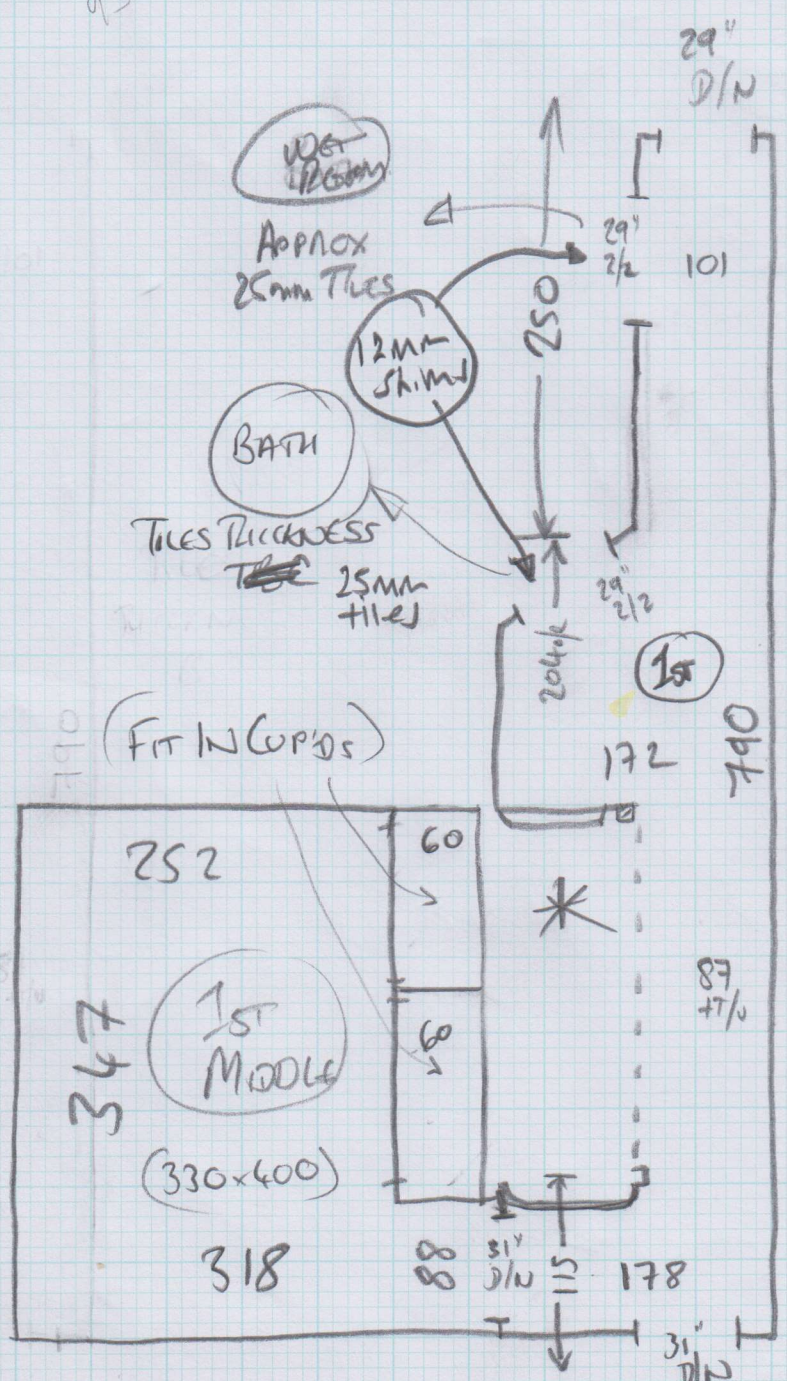 29"
D/N
WET
ROOM
APPROX
25mm TILES
29"
2/2
101
250
12mm
Shims
BATH
TILES THICKNESS
25mm
tiles
29"
2/2
204
1ST
172
790
790
(FIT IN CUP'DS)
60
252
87
+T/
1ST
MIDDLE
60
347
(330x400)
318
88
31"
D/N
115
178
31"
D/N